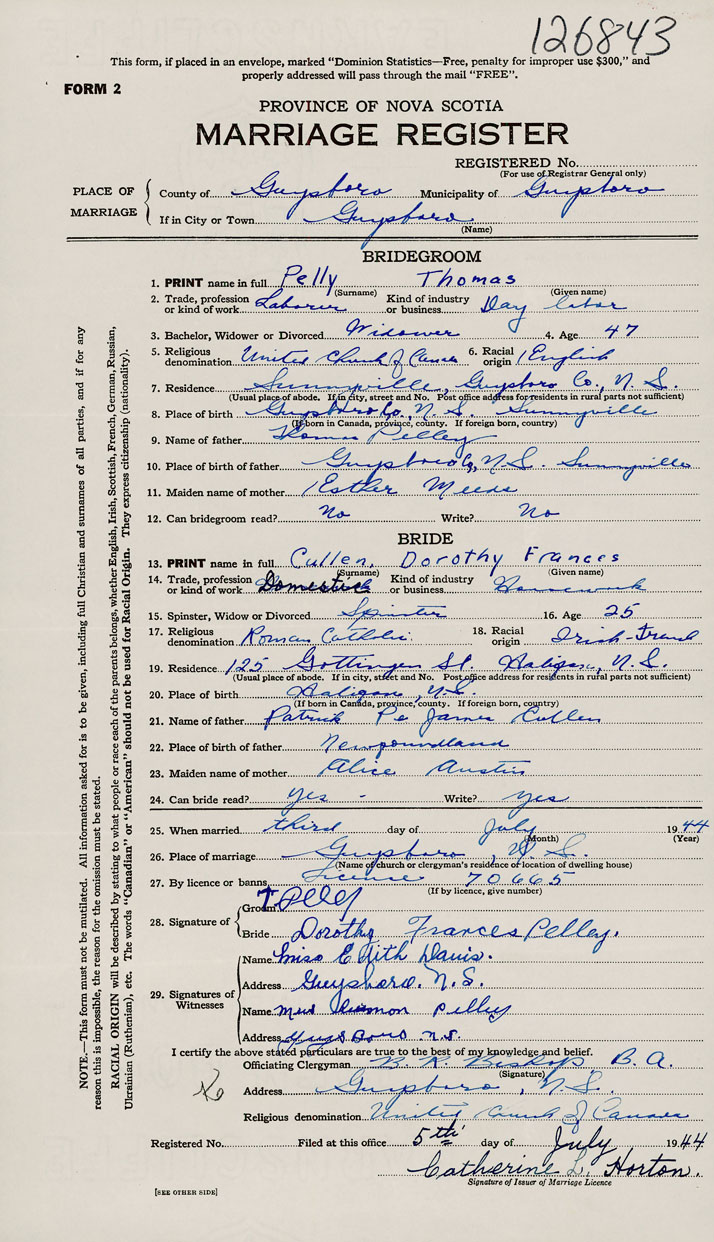 126843
This form, if placed in an envelope, marked "Dominion Statistics—Free, penalty for improper use $300," and
properly addressed will pass through the mail "FREE".
FORM 2
PROVINCE OF NOVA SCOTIA
MARRIAGE REGISTER
REGISTERED No.
(For use of Registrar General only)
PLACE OF MARRIAGE
County of Guysboro Municipality of Guysboro
If in City or Town Guysboro
(Name)
BRIDEGROOM
1. PRINT name in full Pelly Thomas
(Surname) (Given name)
2. Trade, profession or kind of work Laborer Kind of industry or business Day labor
3. Bachelor, Widower or Divorced Widower 4. Age 47
5. Religious denomination United Church of Canada 6. Racial origin English
7. Residence Sunnyville, Guysboro Co., N. S.
(Usual place of abode. If in city, street and No. Post office address for residents in rural parts not sufficient)
8. Place of birth Guysboro Co., N. S. Sunnyville
(If born in Canada, province, county. If foreign born, country)
9. Name of father Thomas Pelley
10. Place of birth of father Guysboro Co, N.S. Sunnyville
11. Maiden name of mother Esther Meeds
12. Can bridegroom read? No Write? No
BRIDE
13. PRINT name in full Cullen, Dorothy Frances
(Surname) (Given name)
14. Trade, profession or kind of work Domestick Kind of industry or business Housework
15. Spinster, Widow or Divorced Spinster 16. Age 25
17. Religious denomination Roman Catholic 18. Racial origin Irish-French
19. Residence 125 Gottingen St. Halifax, N. S.
(Usual place of abode. If in city, street and No. Post office address for residents in rural parts not sufficient)
20. Place of birth Halifax, N.S.
(If born in Canada, province, county. If foreign born, country)
21. Name of father Patrick James Cullen
22. Place of birth of father Newfoundland
23. Maiden name of mother Alice Austin
24. Can bride read? Yes - Write? Yes
25. When married third day of July 1944
(Month) (Year)
26. Place of marriage Guysboro, N. S.
(Name of church or clergyman's residence or location of dwelling house)
27. By licence or banns License 70665
(If by licence, give number)
28. Signature of
Groom T Pelley
Bride Dorothy Frances Pelley.
29. Signatures of Witnesses
Name Miss Edith Davis.
Address Guysboro. N.S.
Name Pelley
Address Guysboro N.S.
I certify the above stated particulars are true to the best of my knowledge and belief.
Officiating Clergyman B. R Bishop B. A.
(Signature)
Address Guysboro, N.S.
Religious denomination United Church of Canada
Registered No. Filed at this office 5th day of July 1944
Catherine L. Horton.
Signature of Issuer of Marriage Licence
[SEE OTHER SIDE]
NOTE.—This form must not be mutilated. All information asked for is to be given, including full Christian and surnames of all parties, and if for any
reason this is impossible, the reason for the omission must be stated.
RACIAL ORIGIN will be described by stating to what people or race each of the parents belongs, whether English, Irish, Scottish, French, German, Russian,
Ukrainian (Ruthenian), etc. The words "Canadian" or "American" should not be used for Racial Origin. They express citizenship (nationality).